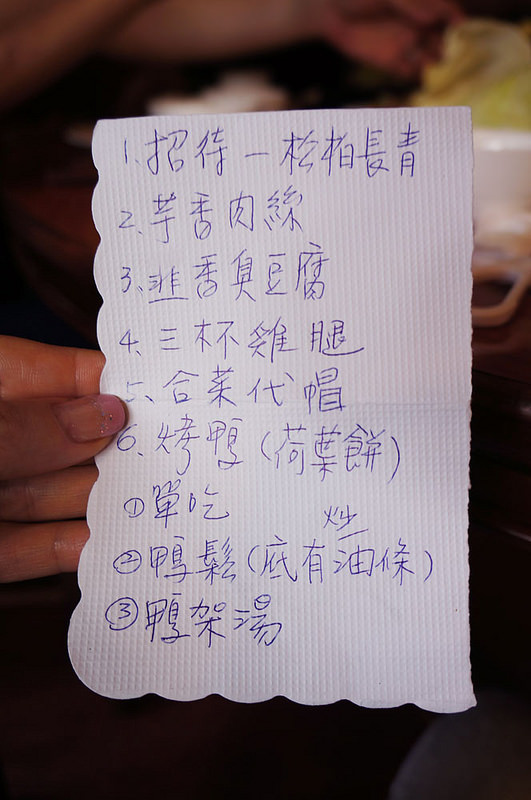 1、招待－松柏長青
2、芋香肉絲
3、韭香臭豆腐
4、三杯雞腿
5、合菜代帽
6、烤鴨(荷葉餅)
①單吃
炒
②鴨鬆(底有油條)
③鴨架湯